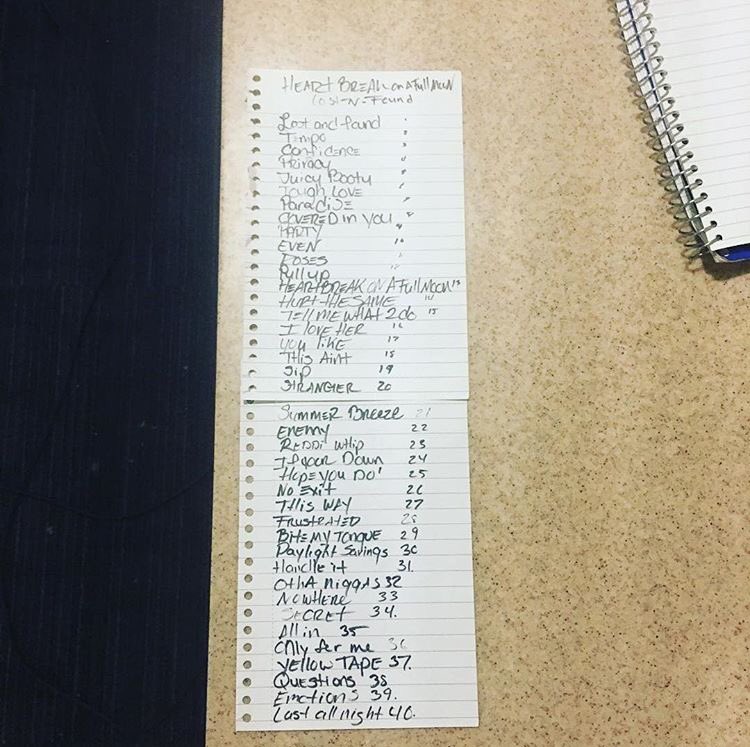 HEART BREAK on A Full Moon
Lost-N-Found
Lost and found
Tempo
Confidence
Privacy
Juicy Booty
Tough LOVE
Paradise
COVERED in You
PARTY 9
EVEN 10
Roses
Pull up
HEARTBREAK ON A Full Moon 13
HURT THE SAME 14
TELL ME WHAT 2 do 15
I LOVE HER 16
you like 17
This Aint 18
Sip 19
STRANGER 20
Summer Breeze 21
ENEMY 22
REDDI Whip 23
If your Down 24
Hope you Do' 25
No Exit 26
This WAY 27
FRUSTRATED 28
Bite my Tongue 29
Daylight Savings 30
Handle it 31.
OthA niggas 32
NOWHERE 33
SECRET 34.
All in 35
Only for me 36
YELLOW TAPE 37.
Questions 38
Emotions 39.
Last all night 40.